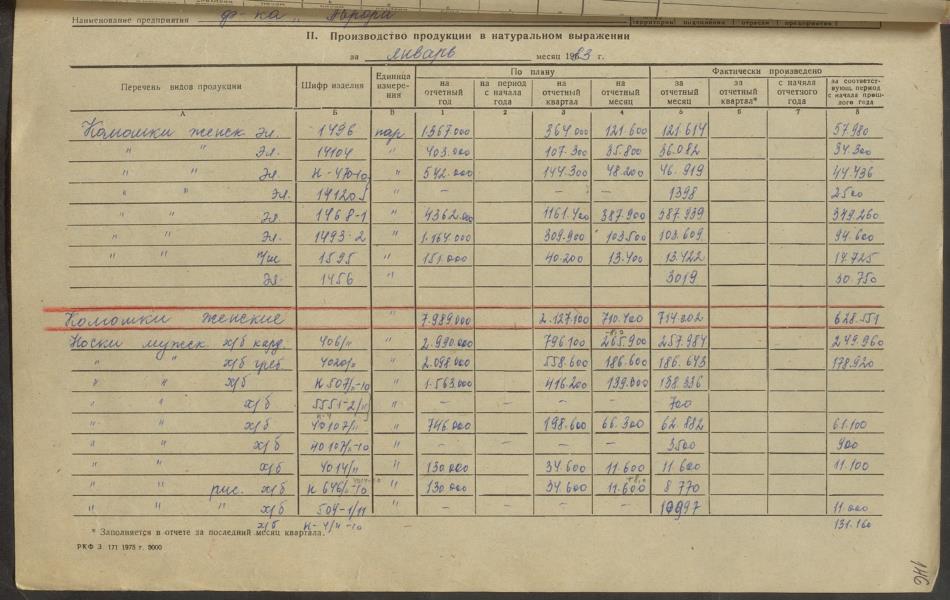 Наименование предприятия ф-ка „Аврора
II. Производство продукции в натуральном выражении
за январь месяц 1983 г.
Перечень видов продукции Шифр изделия Единица измерения По плану Фактически произведено
на отчетный год на период с начала года на отчетный квартал на отчетный месяц за отчетный месяц за отчетный квартал* с начала отчетного года за соответствующ. период с начала прошлого года
А Б В 1 2 3 4 5 6 7 8
женск эл. 1496 пар 1.367.000 364.000 121.600 121.614 57.980
" " эл. 14104 " 403.000 107.300 35.800 36.082 34.300
" " эл. " 542.000 144.300 48.200 46.919 44.436
" " эл. " – – – 1398 2500
" " эл. 1468-1 " 4362.000 1161.400 387.900 387.939 349.260
" " эл. 1493-2 " 1.164.000 309.900 103.500 103.609 94.600
" " п/ш 1595 " 151.000 40.200 13.400 13.422 17.725
эл. 1456 " 3019 30.750
женские " 7.989.000 2.127.100 710.400 714.002 628.551
Носки мужск. х/б кард. 406/11 " 2.990.000 796.100 265.900 257.984 249.960
" " х/б греб. " 2.098.000 558.600 186.600 186.643 178.920
" " х/б " 1.563.000 416.200 139.000 138.336
" " х/б " – – – – 700
" " х/б " 746.000 198.600 66.300 62.882 61.100
" " х/б " – – – – 3500 900
" " х/б 4014/11 " 130.000 34.600 11.600 11.600 11.100
" " рис. х/б " 130.000 34.600 11.600 8 770
" " " х/б 504-1/11 " – – – – 11 000
х/б 131.160
* Заполняется в отчете за последний месяц квартала.
РКФ З. 171 1975 г. 3000
146